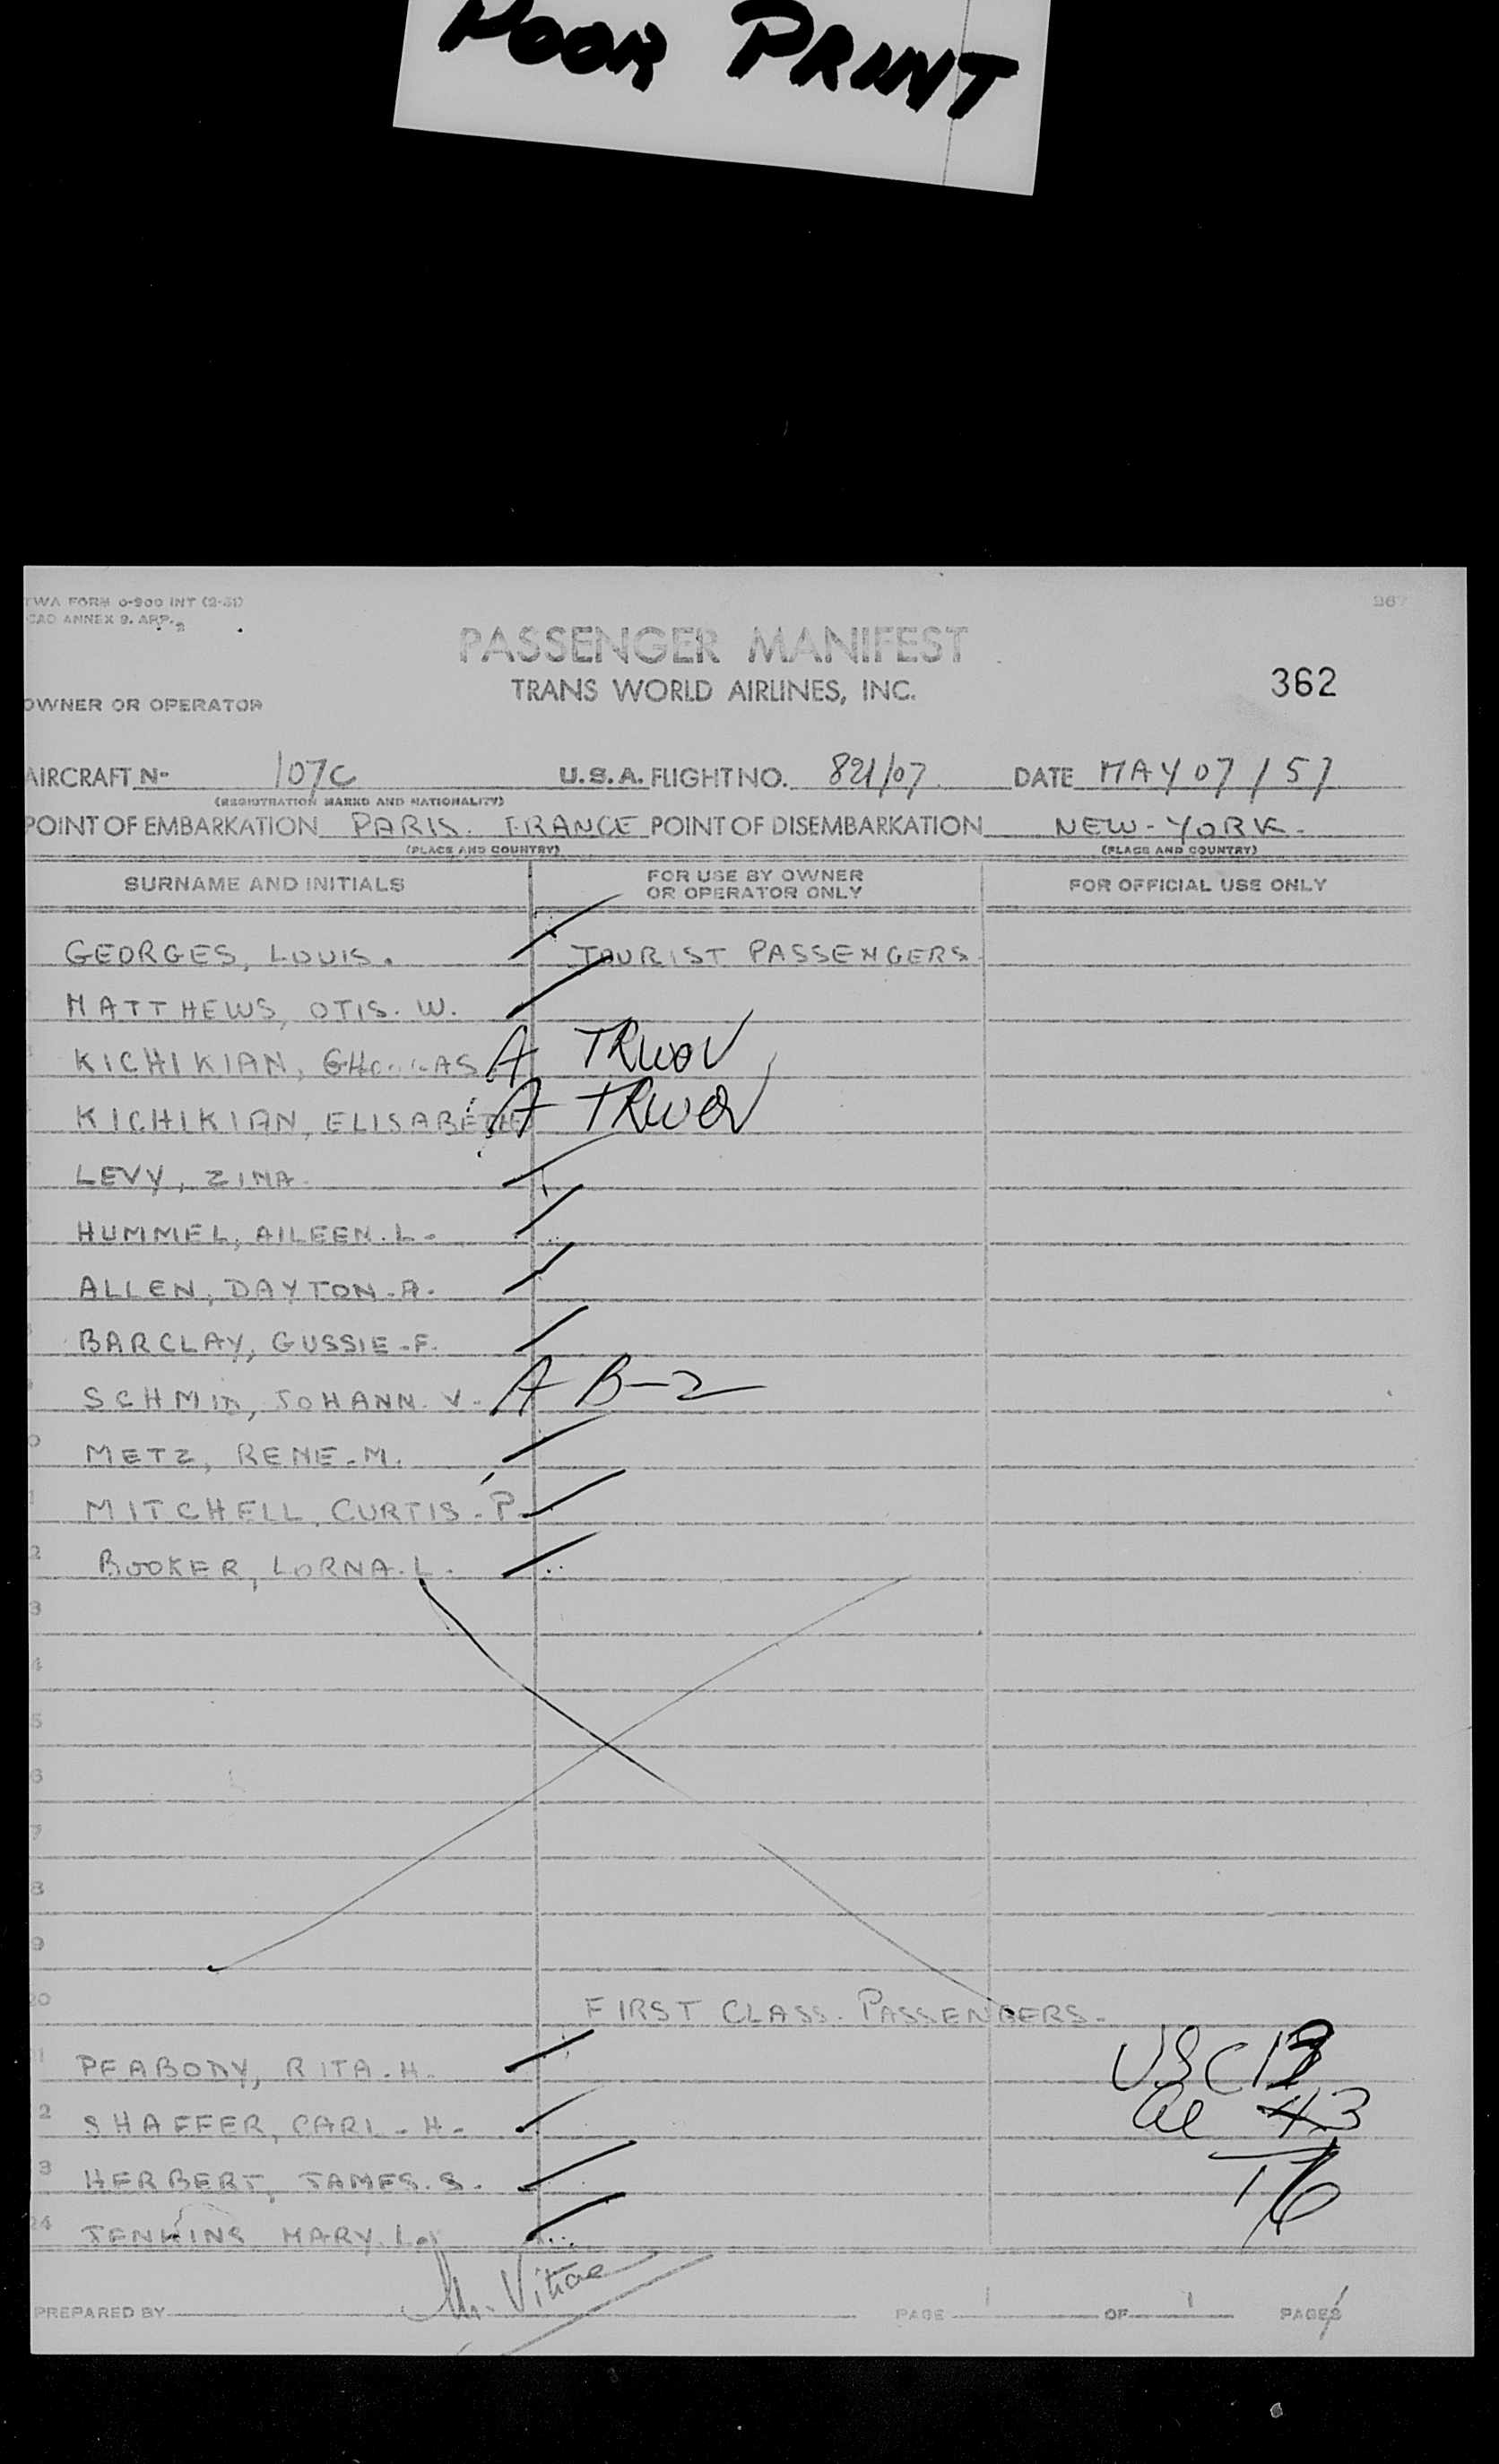 POOR PRINT
TWA FORM 0-900 INT (2-51)
ICAO ANNEX 9. APP. 2
PASSENGER MANIFEST
TRANS WORLD AIRLINES, INC.
362
OWNER OR OPERATOR
AIRCRAFT No 107C U.S.A. FLIGHT NO. 821/07 DATE MAY 07/57
(REGISTRATION MARKS AND NATIONALITY)
POINT OF EMBARKATION PARIS. FRANCE POINT OF DISEMBARKATION NEW-YORK.
(PLACE AND COUNTRY) (PLACE AND COUNTRY)
SURNAME AND INITIALS FOR USE BY OWNER OR OPERATOR ONLY FOR OFFICIAL USE ONLY
GEORGES, LOUIS. TOURIST PASSENGERS.
MATTHEWS, OTIS. W.
KICHIKIAN, A TRWOV
KICHIKIAN, ELISABETH A TRWOV
LEVY, ZINA.
HUMMEL, AILEEN. L.
ALLEN, DAYTON-A.
BARCLAY, GUSSIE-F.
SCHMID, JOHANN. V. A B-2
METZ, RENE-M.
MITCHELL, CURTIS-P.
2 BOOKER, LORNA. L.
3
4
5
6
7
8
9
20 FIRST CLASS. PASSENGERS.
1 PEABODY, RITA-H. USC 13
2 SHAFFER, CARL-H. al 3
3 HERBERT, JAMES. S. 16
24 JENKINS MARY. L.
PREPARED BY PAGE 1 OF 1 PAGES